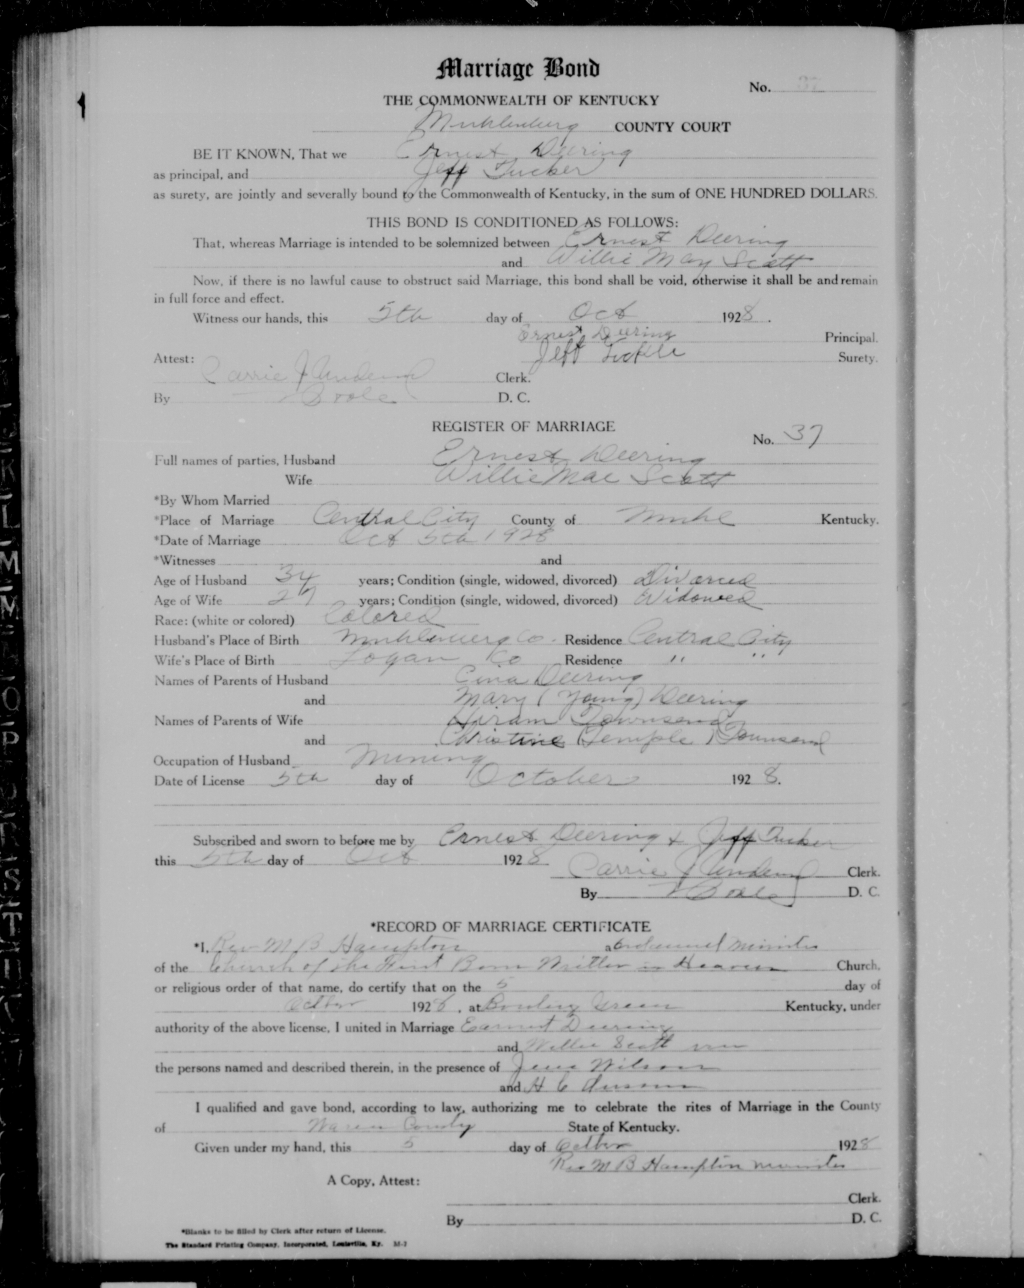 Marriage Bond
No. 37
THE COMMONWEALTH OF KENTUCKY
Muhlenburg COUNTY COURT
BE IT KNOWN, That we Ernest Deering
as principal, and Jeff Tucker
as surety, are jointly and severally bound to the Commonwealth of Kentucky, in the sum of ONE HUNDRED DOLLARS.
THIS BOND IS CONDITIONED AS FOLLOWS:
That, whereas Marriage is intended to be solemnized between Ernest Deering
and Willie May Scott
Now, if there is no lawful cause to obstruct said Marriage, this bond shall be void, otherwise it shall be and remain
in full force and effect.
Witness our hands, this 5th day of Oct 1928.
Ernest Deering Principal.
Attest: Jeff Surety.
Carrie J Clerk.
By D. C.
REGISTER OF MARRIAGE
No. 37
Full names of parties, Husband Ernest Deering
Wife Willie Mae Scott
*By Whom Married
*Place of Marriage Central City County of Muhl Kentucky.
*Date of Marriage Oct 5th 1928
*Witnesses and
Age of Husband 34 years; Condition (single, widowed, divorced) Divorced
Age of Wife 27 years; Condition (single, widowed, divorced) Widowed
Race: (white or colored) Colored
Husband's Place of Birth Muhlenburg Co. Residence Central City
Wife's Place of Birth Logan Co Residence " "
Names of Parents of Husband Deering
and Mary (Young) Deering
Names of Parents of Wife Hiram Townsend
and Christine (Temple) Townsend
Occupation of Husband Mining
Date of License 5th day of October 1928.
Subscribed and sworn to before me by Ernest Deering & Jeff Tucker
this 5th day of Oct 1928
Carrie J Clerk.
By D. C.
*RECORD OF MARRIAGE CERTIFICATE
*I, Rev M B Hampton a ordained minister
of the Church of the First Born in Heaven Church,
or religious order of that name, do certify that on the 5 day of
1928, at Bowling Green Kentucky, under
authority of the above license, I united in Marriage Earnest Deering
and Willie Scott
the persons named and described therein, in the presence of Wilson
and H C
I qualified and gave bond, according to law, authorizing me to celebrate the rites of Marriage in the County
of Warren County State of Kentucky.
Given under my hand, this 5 day of 1928
Rev M B Hampton minister
A Copy, Attest:
Clerk.
By D. C.
*Blanks to be filled by Clerk after return of License.
The Standard Printing Company, Incorporated, Louisville, Ky.